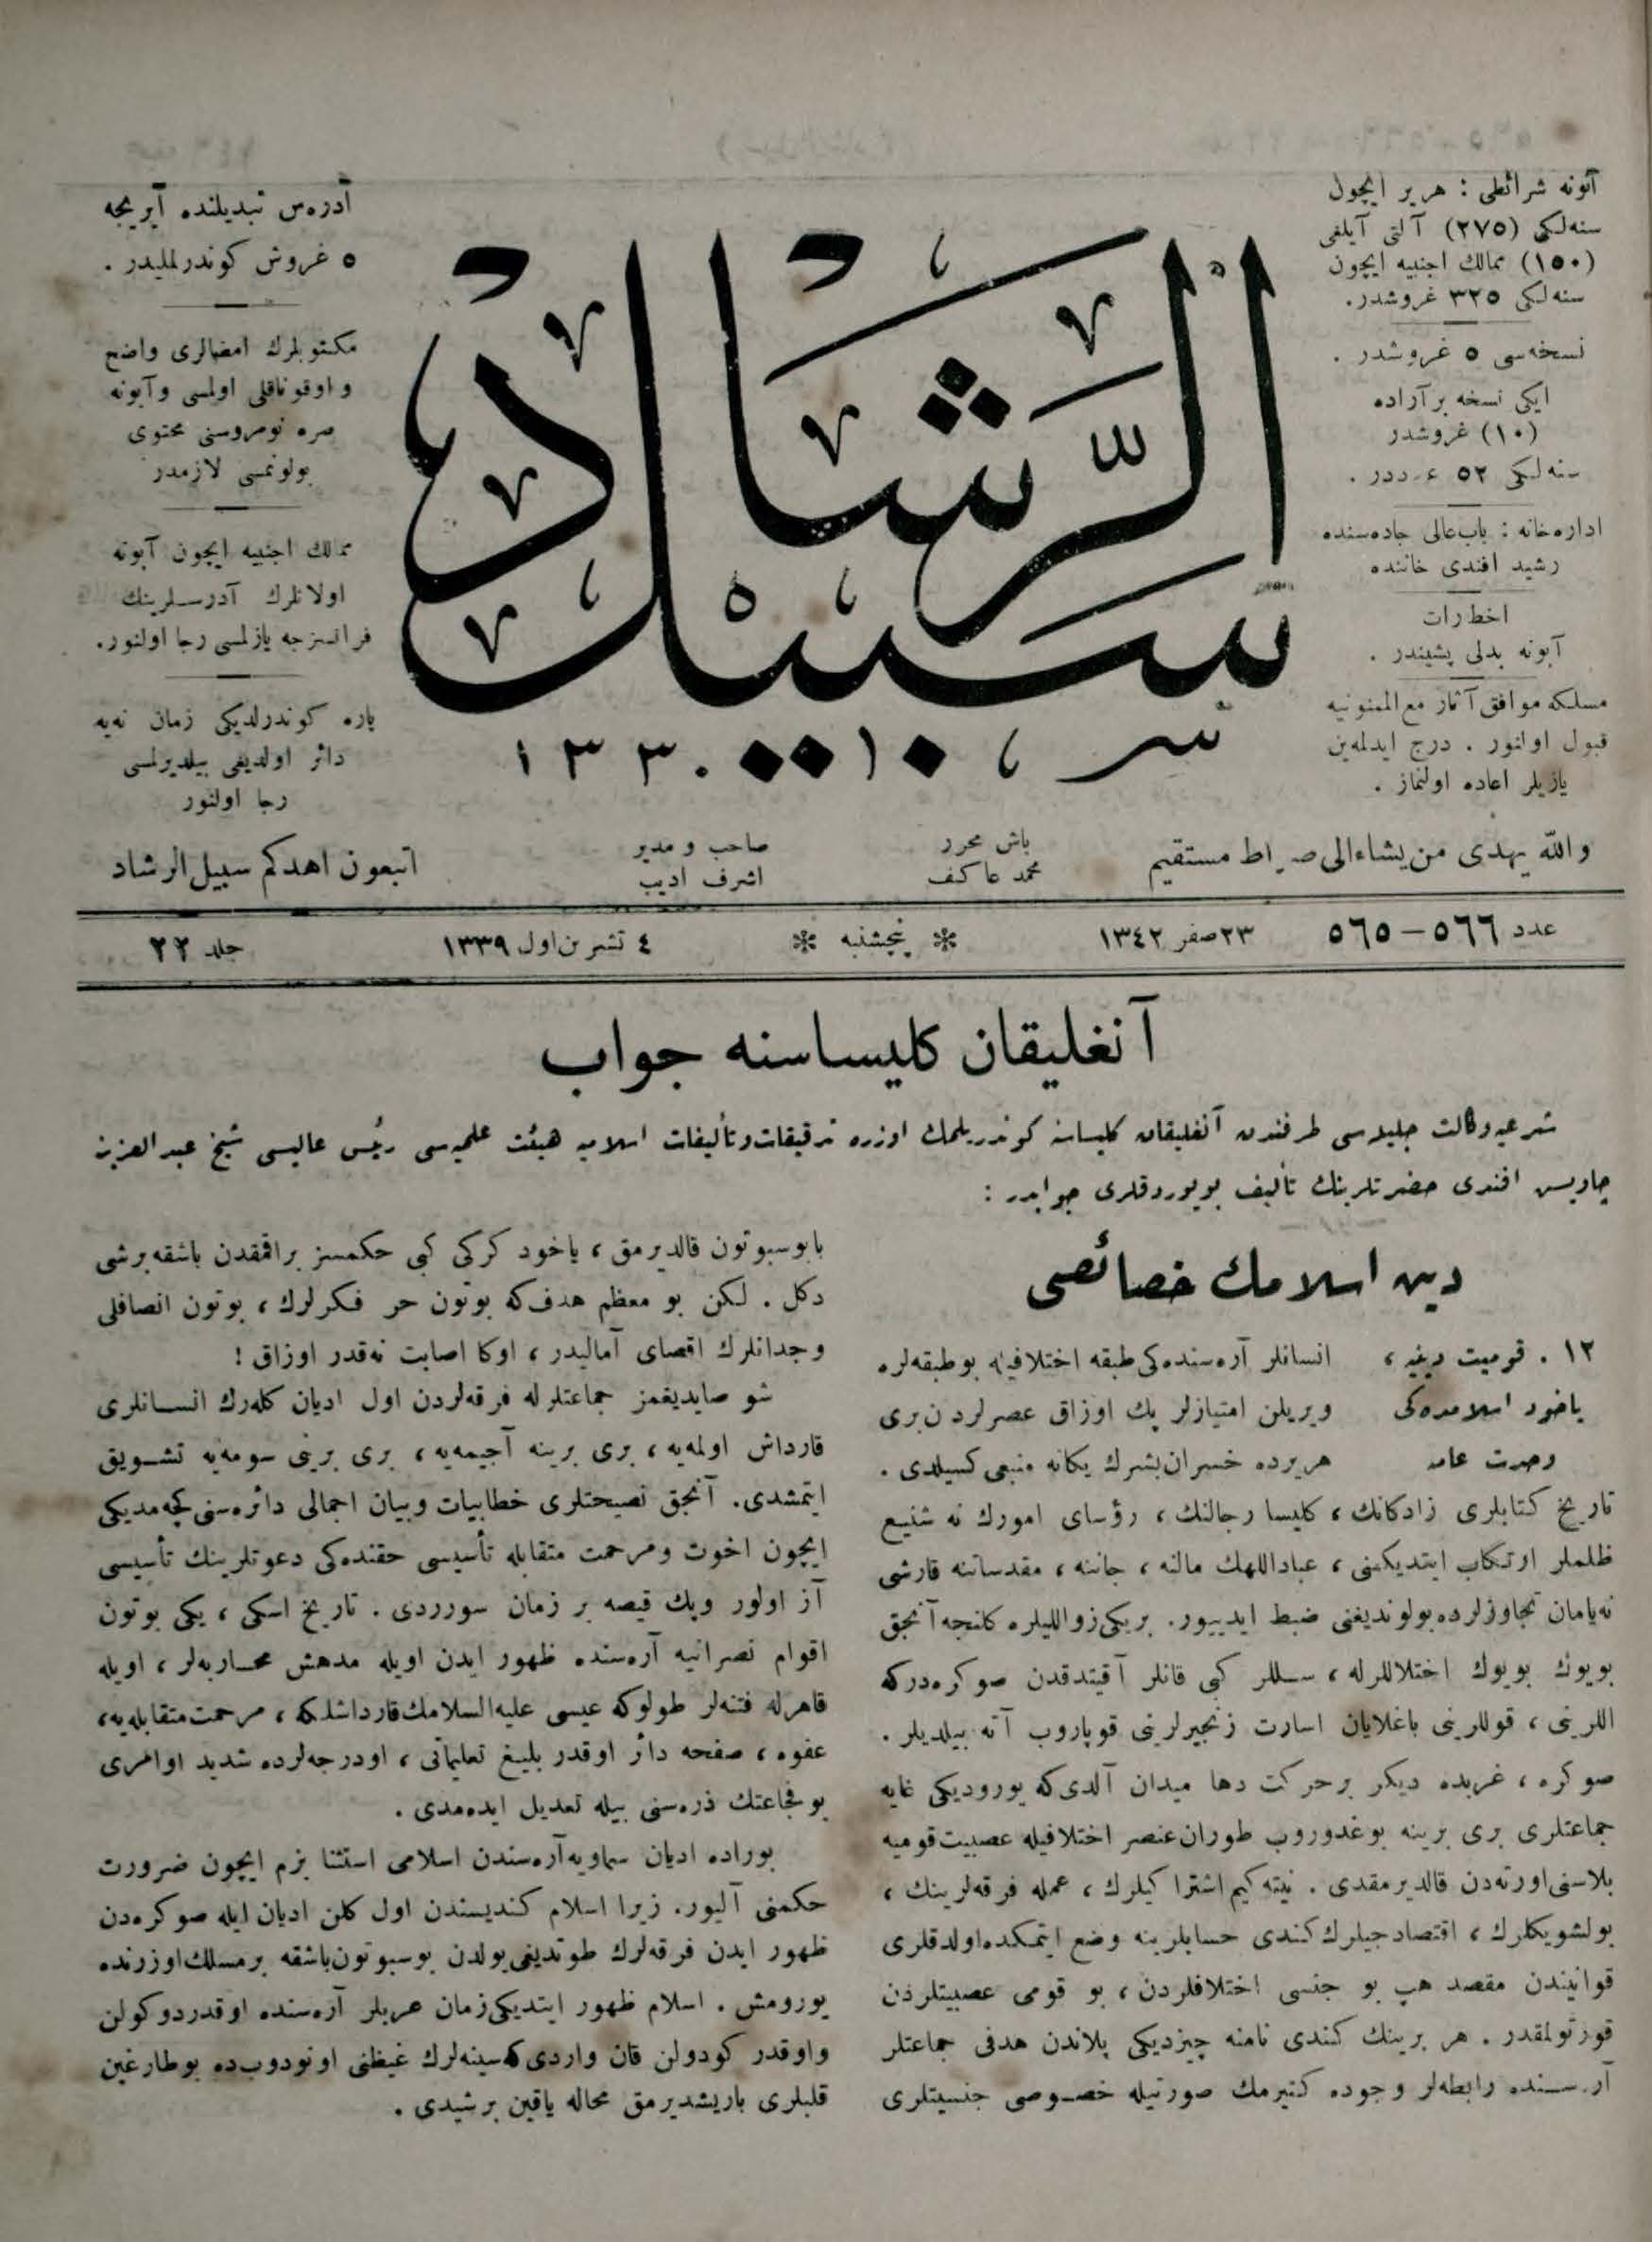 آبونه شرائطی : هر یر ایچون
سنه‌لکی (٢٧٥) آلتی آیلغی
(١٥٠) ممالك اجنبیه ایچون
سنه‌لکی ٣٢٥ غروشدر.
نسخه‌سی ٥ غروشدر .
ایکی نسخه بر آراده
(١٠) غروشدر
سنه‌لکی ٥٢ عددر .
اداره‌خانه : باب‌عالی جاده‌سنده
رشید افندی خاننده
اخطارات
آبونه بدلی پشیندر .
مسلکه موافق آثار مع الممنونیه
قبول اولنور . درج ایدلمه‌ین
یازیلر اعاده اولنماز .
سبیل الرّشاد
١٣٣٠
آدره‌س تبدیلنده آیریجه
٥ غروش کوندرلملیدر .
مکتوبلرك امضالری واضح
و اوقوناقلی اولمسی و آبونه
صره نومروسنی محتوی
بولونمسی لازمدر
ممالك اجنبیه ایچون آبونه
اولانلرك آدرسلرینك
فرانسزجه یازلمسی رجا اولنور.
پاره کوندرلدیکی زمان نه‌یه
دائر اولدیغی بیلدیرلمسی
رجا اولنور
والله یهدی من یشاء الی صراط مستقیم
باش محرر
محمد عاکف
صاحب و مدیر
اشرف ادیب
اتبعون اهدکم سبیل الرشاد
عدد ٥٦٦ – ٥٦٥ ٢٣ صفر ١٣٤٢ * پنجشنبه * ٤ تشرین اول ١٣٣٩ جلد ٢٢
آنغلیقان کلیساسنه جواب
شرعیه وکالت جلیله‌سی طرفندن آنغلیقان کلیساسنه کوندریلمك اوزره تدقیقات و تألیفات اسلامیه هیئت علمیه‌سی رئیس عالیسی شیخ عبدالعزیز
چاویش افندی حضرتلرینك تألیف بویوردقلری جوابدر :
دین اسلامك خصائصی
١٢ . قومیت دینیه ، انسانلر آره‌سنده‌کی طبقه اختلافیله بو طبقه‌لره
یاخود اسلامده‌کی ویریلن امتیازلر پك اوزاق عصرلردن بری
وحدت عامه هر یرده خسران بشرك یکانه منبعی کسیلدی .
تاریخ کتابلری زادکانك ، کلیسا رجالنك ، رؤسای امورك نه شنیع
ظلملر ارتکاب ایتدیکنی ، عباداللهك مالنه ، جاننه ، مقدساتنه قارشی
نه یامان تجاوزلرده بولوندیغنی ضبط ایدییور. بریکی زواللیلره کلنجه آنجق
بویوك بویوك اختلاللرله ، سللر کبی قانلر آقیتدقدن صوکره‌درکه
اللرینی ، قوللرینی باغلایان اسارت زنجیرلرینی قوپاروب آته بیلدیلر .
صوکره ، غربده دیکر بر حرکت دها میدان آلدی که یورودیکی غایه
جماعتلری بری برینه بوغدوروب طوران عنصر اختلافیله عصبیت قومیه
بلاسنی اورته‌دن قالدیرمقدی . نیته کیم اشتراکیلرك ، عمله فرقه‌لرینك ،
بولشویکلرك ، اقتصادجیلرك کندی حسابلرینه وضع ایتمکده اولدقلری
قوانیندن مقصد هپ بو جنسی اختلافلردن ، بو قومی عصبیتلردن
قورتولمقدر . هر برینك کندی نامنه چیزدیکی پلاندن هدفی جماعتلر
آره‌سنده رابطه‌لر وجوده کتیرمك صورتیله خصوصی جنسیتلری
یا بوسبوتون قالدیرمق ، یاخود کرکی کبی حکمسز براقمقدن باشقه برشی
دکل . لکن بو معظم هدف که بوتون حر فکرلرك ، بوتون انصافلی
وجدانلرك اقصای آمالیدر ، اوکا اصابت نه‌قدر اوزاق !
شو صایدیغمز جماعتلرله فرقه‌لردن اول ادیان کله‌رك انسانلری
قارداش اولمه‌یه ، بری برینه آجیمه‌یه ، بری برینی سومه‌یه تشویق
ایتمشدی. آنجق نصیحتلری خطابیات و بیان اجمالی دائره‌سنی کچه‌مدیکی
ایچون اخوت و مرحمت متقابله تأسیسی حقنده‌کی دعوتلرینك تأسیسی
آز اولور و پك قیصه بر زمان سورردی . تاریخ اسکی ، یکی بوتون
اقوام نصرانیه آره‌سنده ظهور ایدن اویله مدهش محاربه‌لر ، اویله
قاهرله فتنه‌لر طولوکه عیسی علیه السلامك قارداشلکه ، مرحمت متقابله‌یه،
عفوه ، صفحه دائر اوقدر بلیغ تعلیماتی ، اودرجه‌لرده شدید اوامری
بو فجاعتك ذره‌سنی بیله تعدیل ایده‌مدی .
بوراده ادیان سماویه آره‌سندن اسلامی استثنا بزم ایچون ضرورت
حکمنی آلیور. زیرا اسلام کندیسندن اول کلن ادیان ایله صوکره‌دن
ظهور ایدن فرقه‌لرك طوتدیغی یولدن بوسبوتون باشقه بر مسلك اوزرنده
یورومش . اسلام ظهور ایتدیکی زمان عربلر آره‌سنده اوقدر دوکولن
و اوقدر کودولن قان واردی که سینه‌لرك غیظنی اونودوب ده بو طارغین
قلبلری باریشدیرمق محاله یاقین بر شیدی .